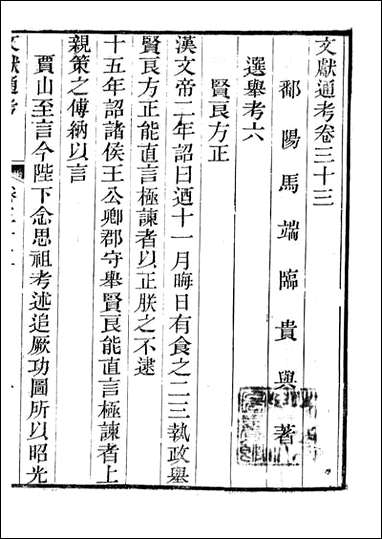 文獻通考卷三十三
鄱陽馬端臨貴與著
選舉考六
賢良方正
漢文帝二年詔曰迺十一月晦日有食之二三執政舉
賢良方正能直言極諫者以正朕之不逮
十五年詔諸侯王公卿郡守舉賢良能直言極諫者上
親策之傅納以言
賈山至言今陛下念思祖考述追厥功圖所以昭光
文獻通考